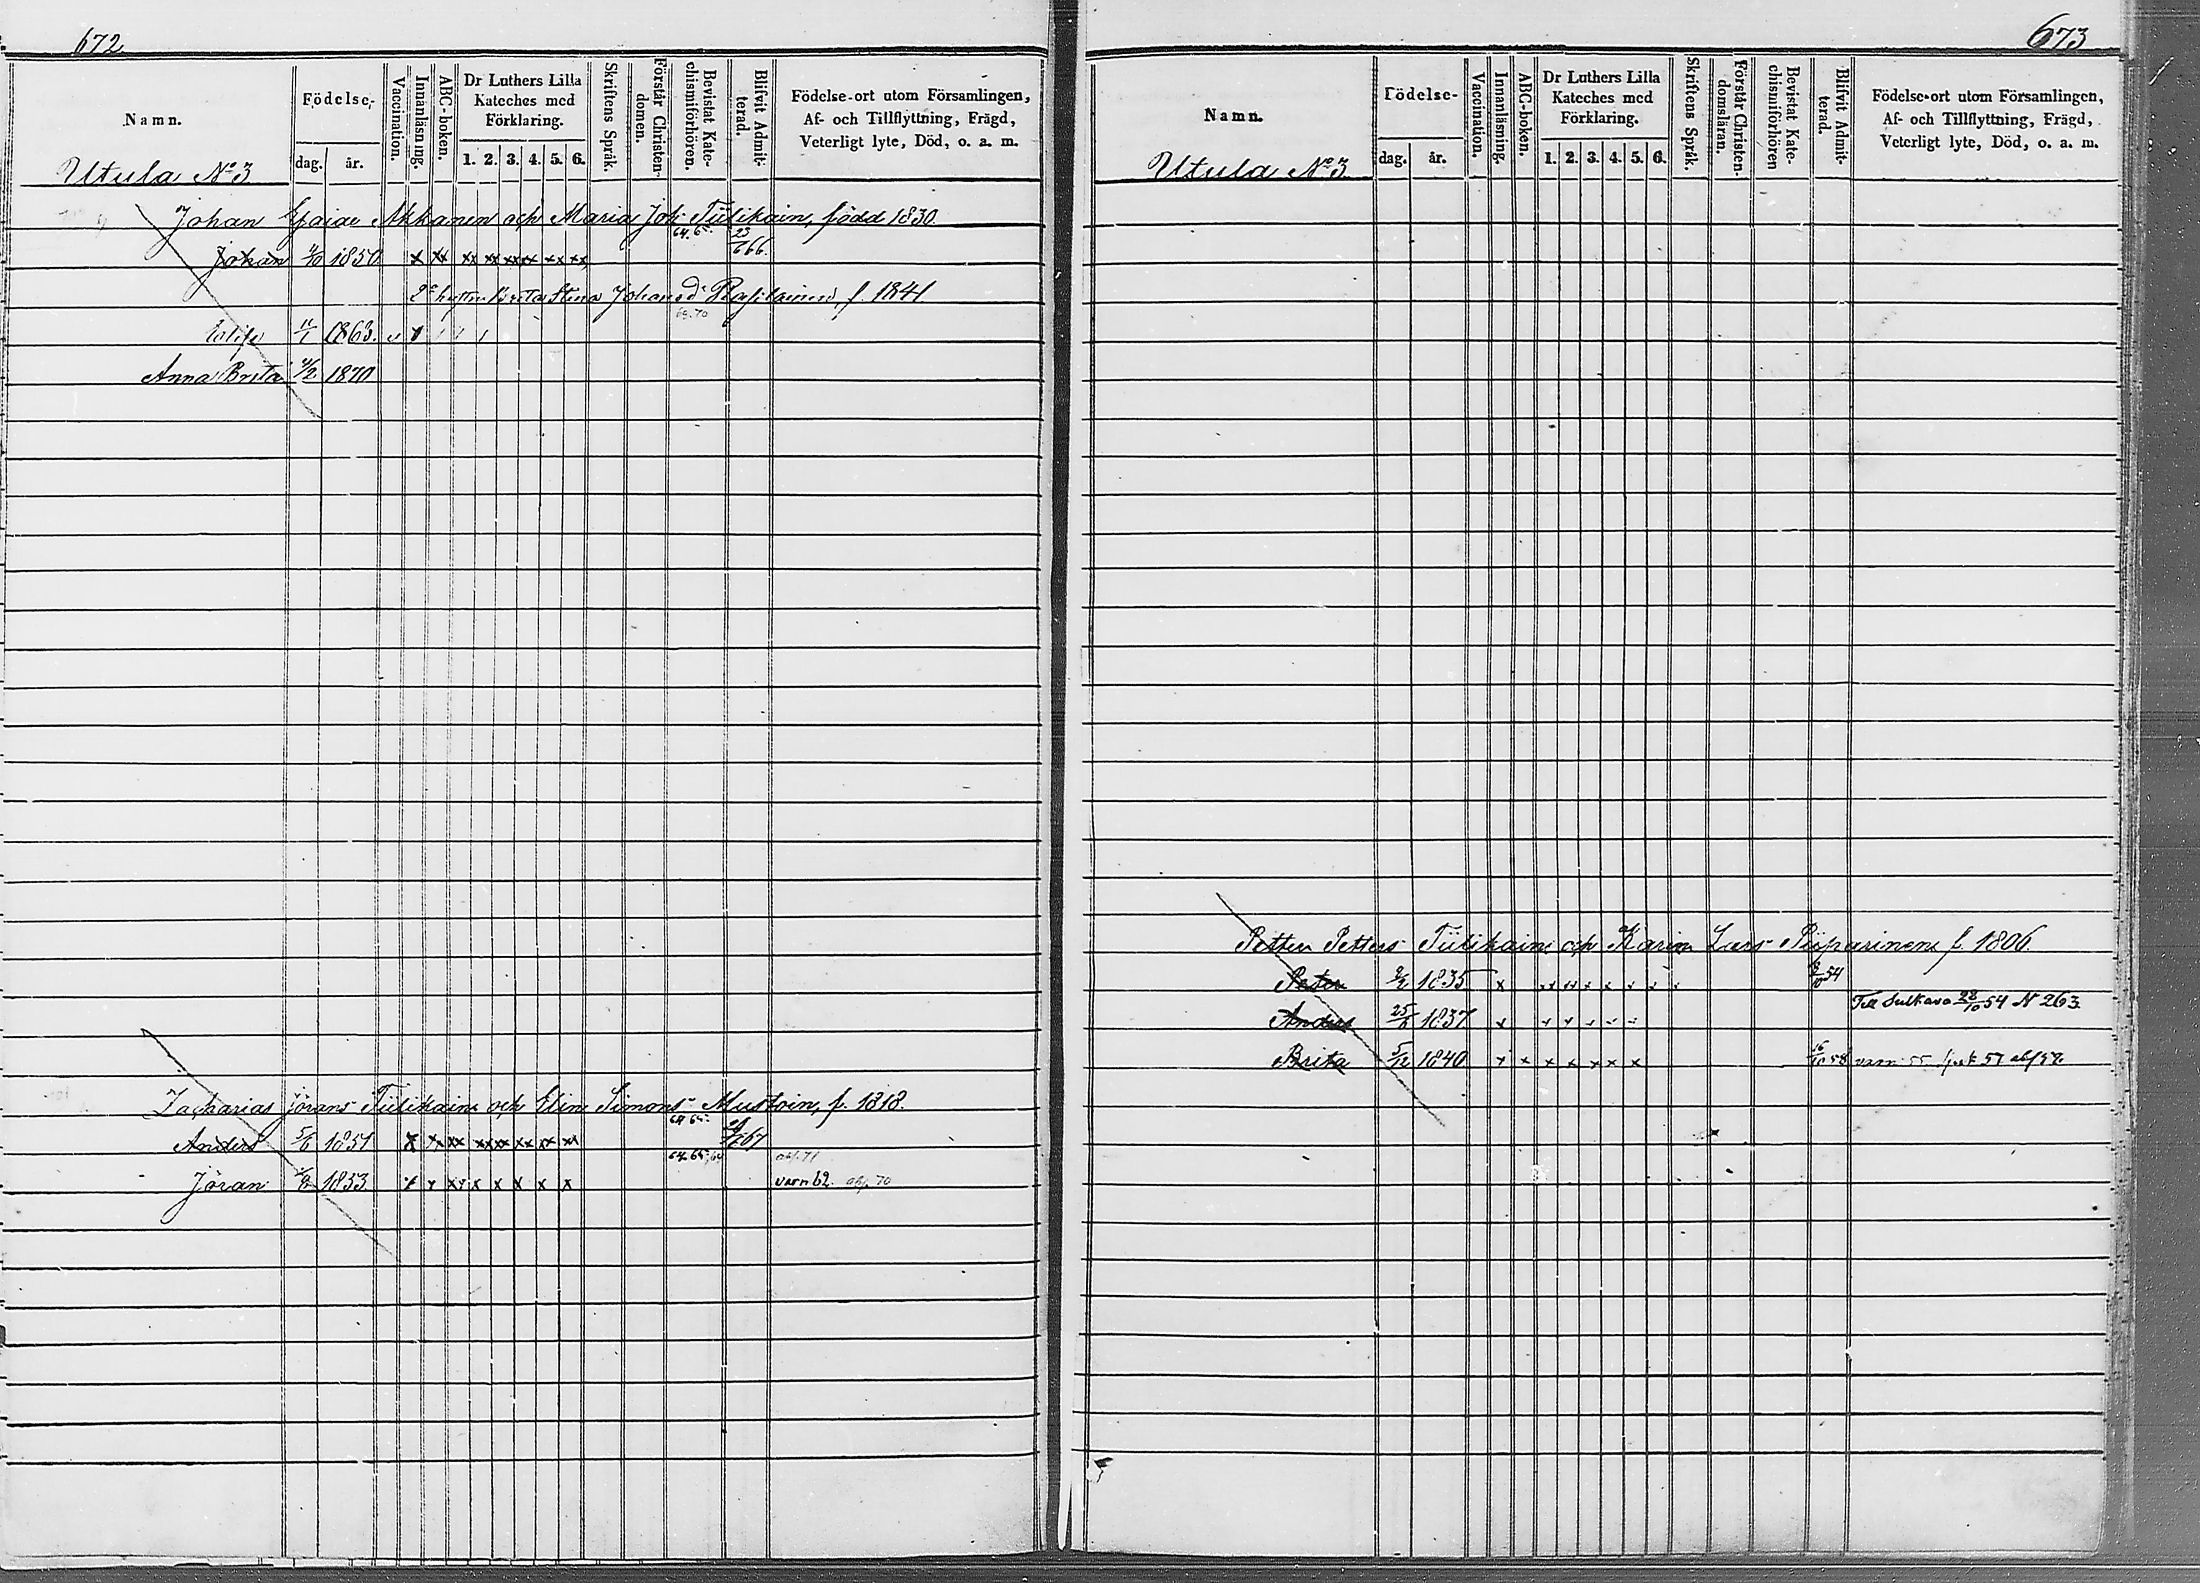 672
Namn.
Födelse-
dag. år.
Vaccination.
Innanläsning.
ABC-boken.
Dr Luthers Lilla Kateches med Förklaring.
1. 2. 3. 4. 5. 6.
Skriftens Språk.
Förstår Christendomen.
Bevistat Katechismiförhören.
Blifvit Admitterad.
Födelse-ort utom Församlingen,
Af- och Tillflyttning, Frägd,
Veterligt lyte, Död, o. a. m.
Utula No 3
Johan Akkanen och Maria Joh. Tiilikain, född 1830.
64. 65.
Johan 1850 x xx xx xx xx xx xx xx 23/6 66.
Brita Stina Johansd: f. 1841
69. 70
1/1 1863.
Anna Brita 1870
Zacharias Jörans Tiilikain och Elin Simons Mustoin, f. 1818.
64 65.
Anders 5/6 1851 x xx xx xx xx xx xx xx 67
64. 65.
abs. 71
Jöran 1853 x x xx x x x x x varn 62. abs. 70
673
Namn.
Födelse-
dag. år.
Vaccination.
Innanläsning.
ABC-boken.
Dr Luthers Lilla Kateches med Förklaring.
1. 2. 3. 4. 5. 6.
Skriftens Språk.
Förstår Christendomsläran.
Bevistat Katechismiförhören
Blifvit Admitterad.
Födelse-ort utom Församlingen,
Af- och Tillflyttning, Frägd,
Veterligt lyte, Död, o. a. m.
Utula No 3
Petter Petters Tiilikain och Karin Lars Piiparinen f. 1806.
Peter 1835 x 54
Till Sulkava 22/10 54 N 263.
Anders 25/6 1837 x
Brita 5/12 1840 x x x x x x x 16/10 58 varn 55 57